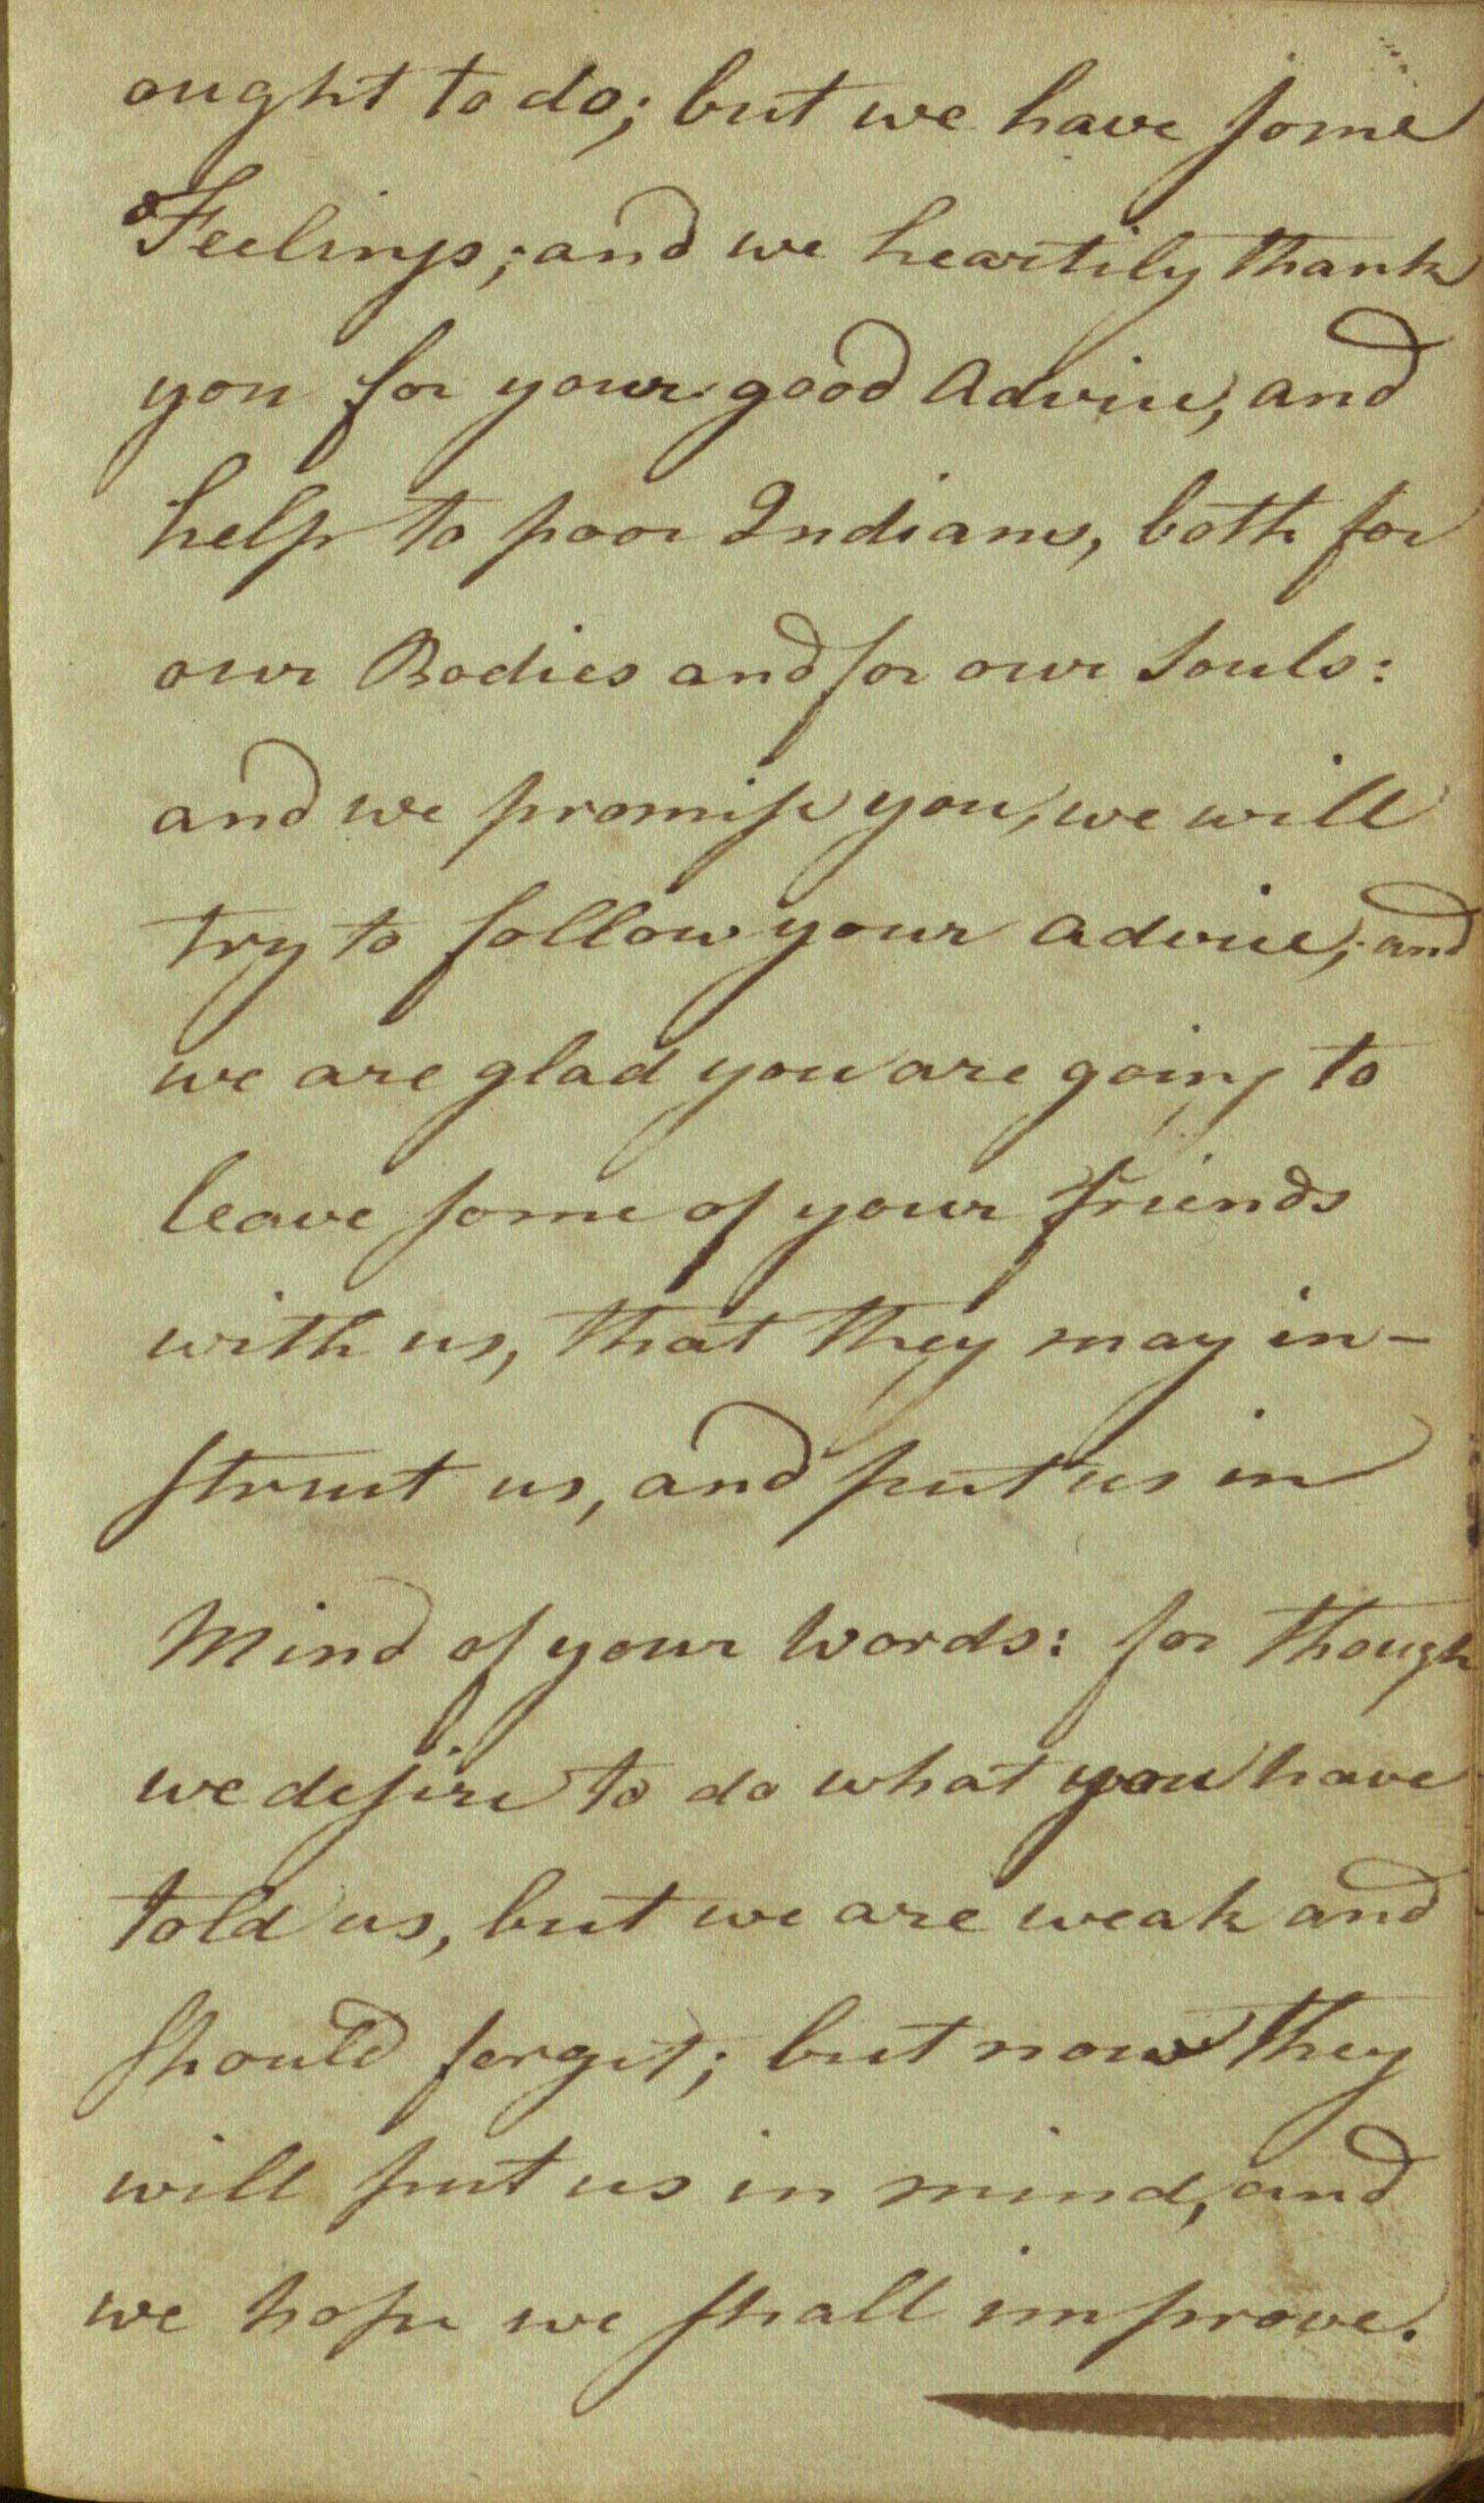 ought to do; but we have some
Feelings; and we heartily thank
you for your good Advice, and
help to poor Indians, both for
our Bodies and for our Souls:
and we promise you, we will
try to follow your advice; and
we are glad you are going to
leave some of your friends
with us, that they may in-
struct us, and put us in
Mind of your Words: for though
we desire to do what you have
told us, but we are weak and
should forget; but now they
will put us in mind, and
we hope we shall improve.